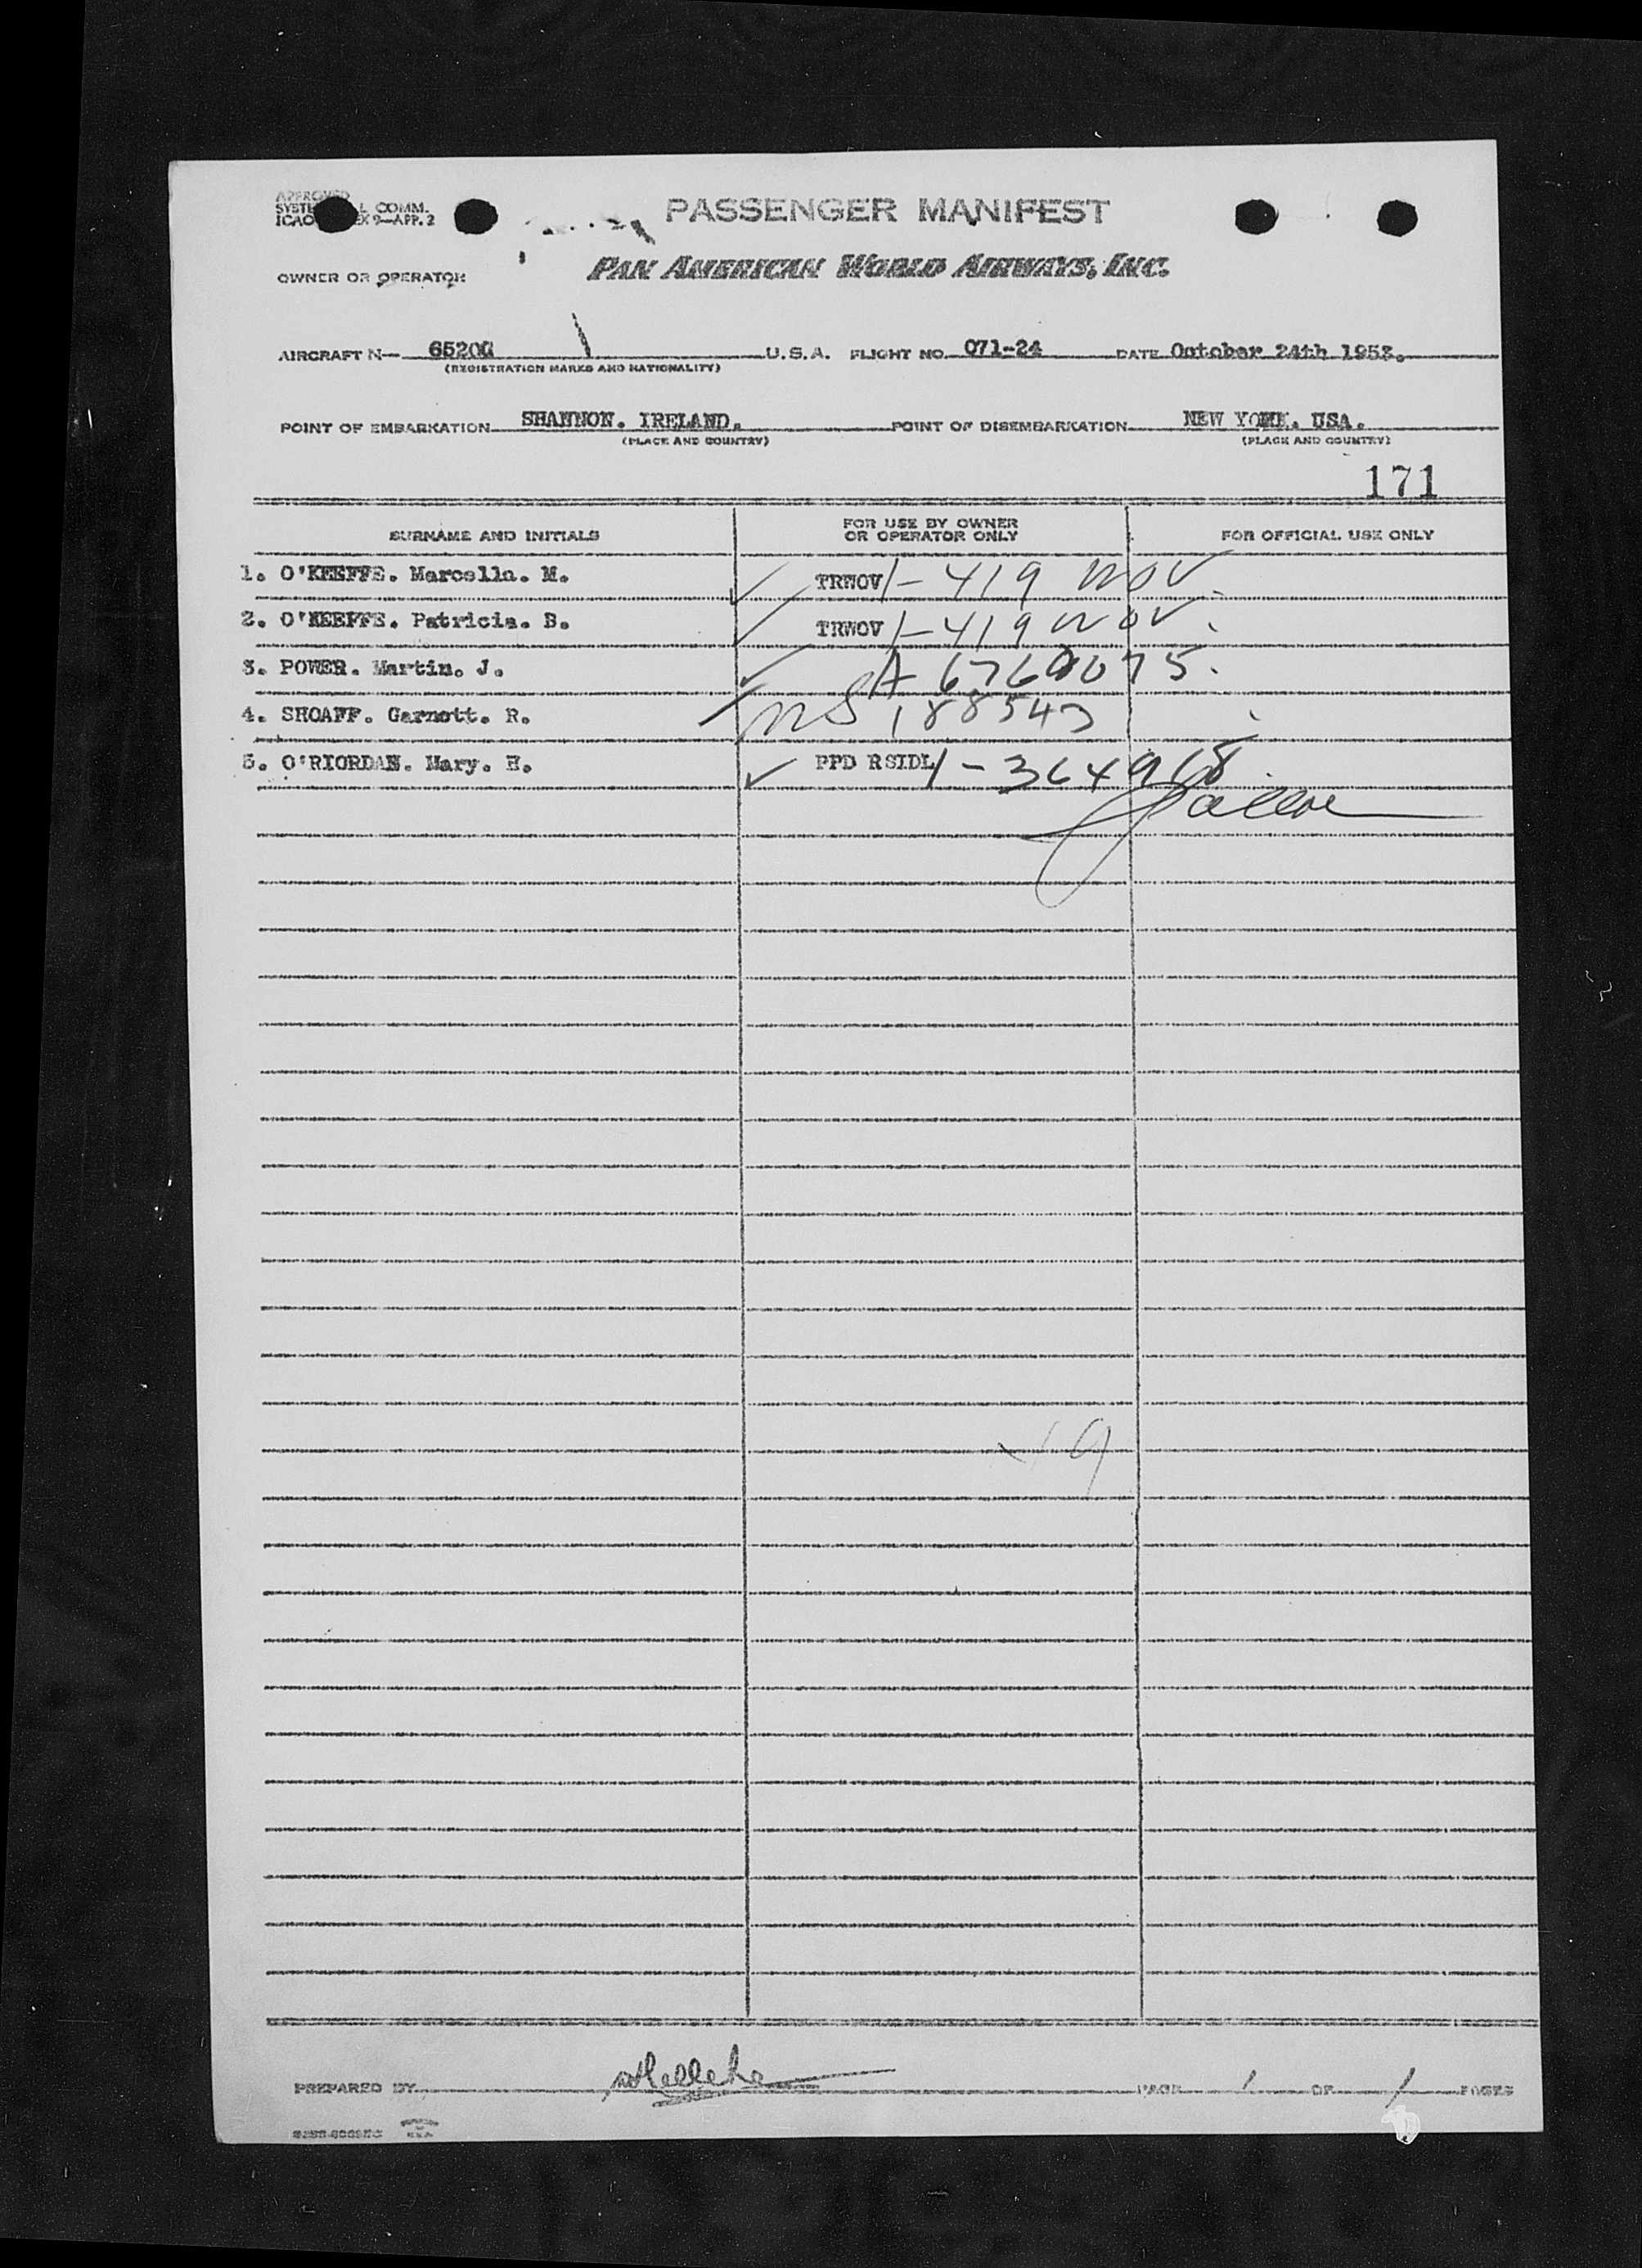 APPROVED
SYSTE & COMM.
ICAO EX 9—APP. 2
PASSENGER MANIFEST
OWNER OR OPERATOR
PAN AMERICAN WORLD AIRWAYS, INC.
AIRCRAFT N— U.S.A. FLIGHT NO. 071-24 DATE October 24th 1953.
(REGISTRATION MARKS AND NATIONALITY)
POINT OF EMBARKATION SHANNON. IRELAND. POINT OF DISEMBARKATION NEW YORK. USA.
(PLACE AND COUNTRY) (PLACE AND COUNTRY)
171
SURNAME AND INITIALS FOR USE BY OWNER OR OPERATOR ONLY FOR OFFICIAL USE ONLY
1. O'KEEFFE. Marcella. M. TRWOV 1-419 WOV
2. O'KEEFFE. Patricia. B. TRWOV 1-419 WOV.
3. POWER. Martin. J. A
4. SHOAFF. Garnett. R. 188543
5. O'RIORDAN. Mary. H. PPD RSIDL 1-364968
19
PREPARED BY PAGE 1 OF 1 PAGES